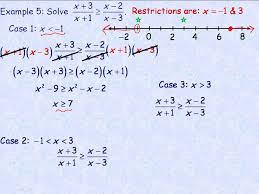 Example 5: Solve (x+3)/(x+1) ≥ (x−2)/(x−3) Restrictions are: x = −1 & 3
Case 1: x < −1
−2 0 2 4 6 8
(x+1)(x−3) (x+3)/(x+1) ≥ (x−2)/(x−3) (x+1)(x−3)
(x−3)(x+3) ≥ (x−2)(x+1)
x² − 9 ≥ x² − x − 2
x ≥ 7
Case 3: x > 3
(x+3)/(x+1) ≥ (x−2)/(x−3)
Case 2: −1 < x < 3
(x+3)/(x+1) ≥ (x−2)/(x−3)